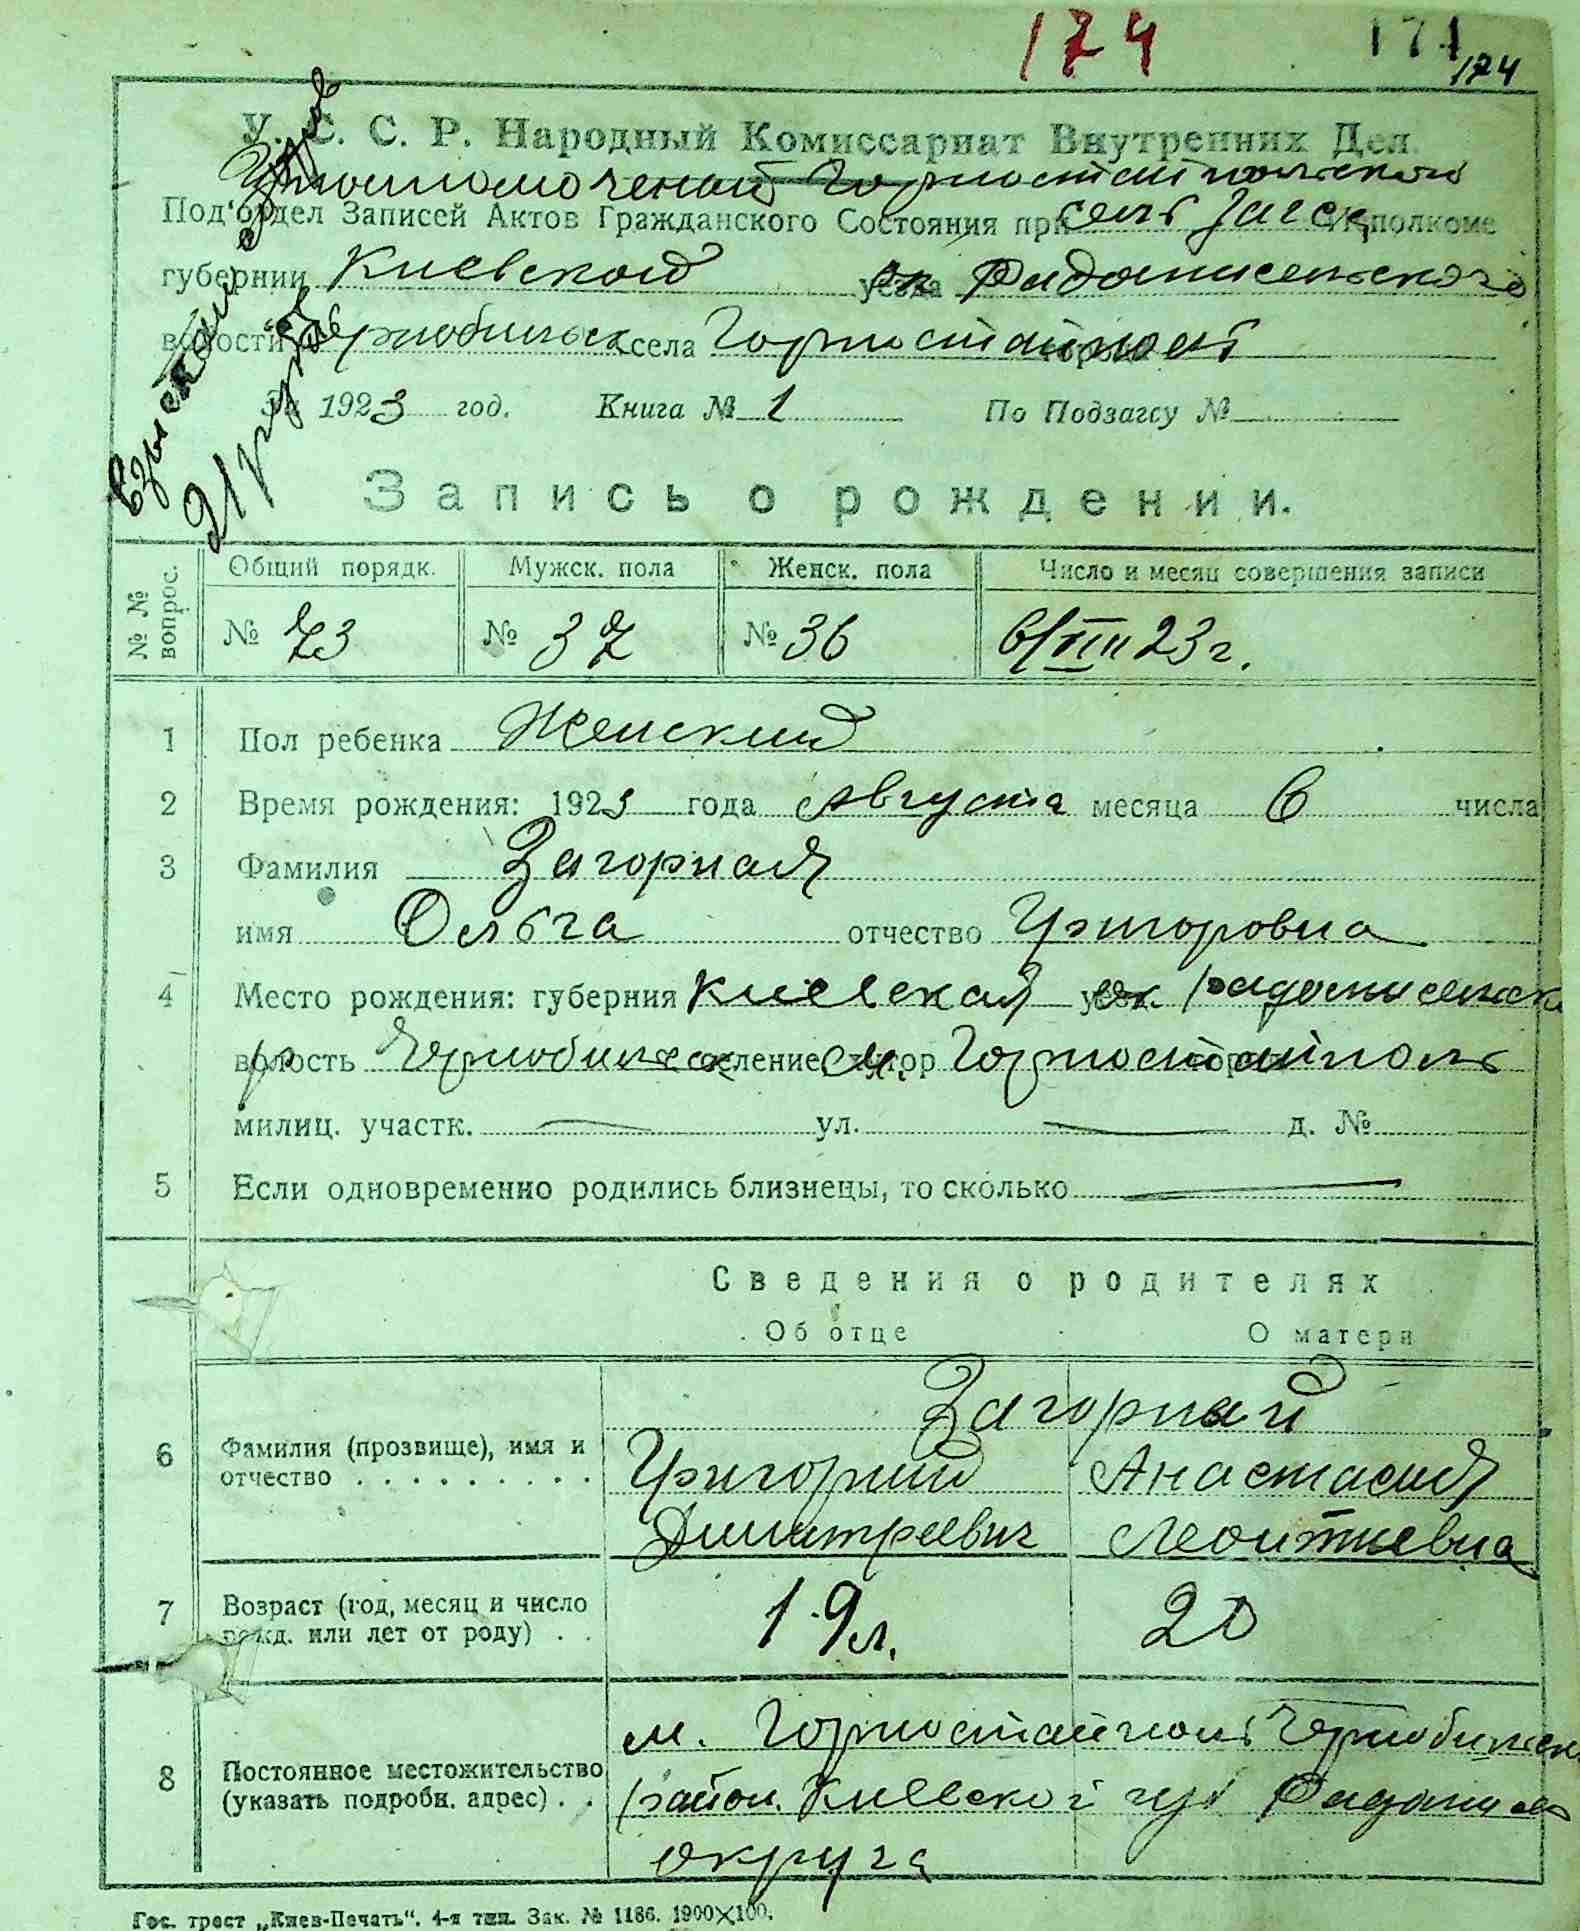 174 171
174
У. С. С. Р. Народный Комиссариат Внутренних Дел.
Уполномоченый Горностайпольской
Под'отдел Записей Актов Гражданского Состояния при сель Загса Исполкоме
губернии Киевской уезда ок Радомисельского
волости Чернобильск села Горностайполь
За 1923 год. Книга № 1 По Подзагсу №
взыскан
21 руб
Запись о рождении.
№ № вопрос. Общий порядк. Мужск. пола Женск. пола Число и месяц совершения записи
№ 73 № 37 № 36 6/VIII 23 г.
1 Пол ребенка Женский
2 Время рождения: 1923 года Августа месяца 6 числа
3 Фамилия Загорная
имя Ольга отчество Григоровна
4 Место рождения: губерния Киевская уезд ок. Радомисельск
волость р Чернобильск селение, хутор м. Горностайполь
милиц. участк. — ул. — д. №
5 Если одновременно родились близнецы, то сколько —
Сведения о родителях
Об отце О матери
Загорный
6 Фамилия (прозвище), имя и отчество Григорий Анастасия
Дмитреевич Леонтиевна
7 Возраст (год, месяц и число рожд. или лет от роду) 19 л. 20
8 Постоянное местожительство (указать подробн. адрес) м. Горностайполь Чернобильск
район. Киевской губ Радомисл
округа
Гос. трест „Киев-Печать“. 4-я тип. Зак. № 1186. 1900×100.